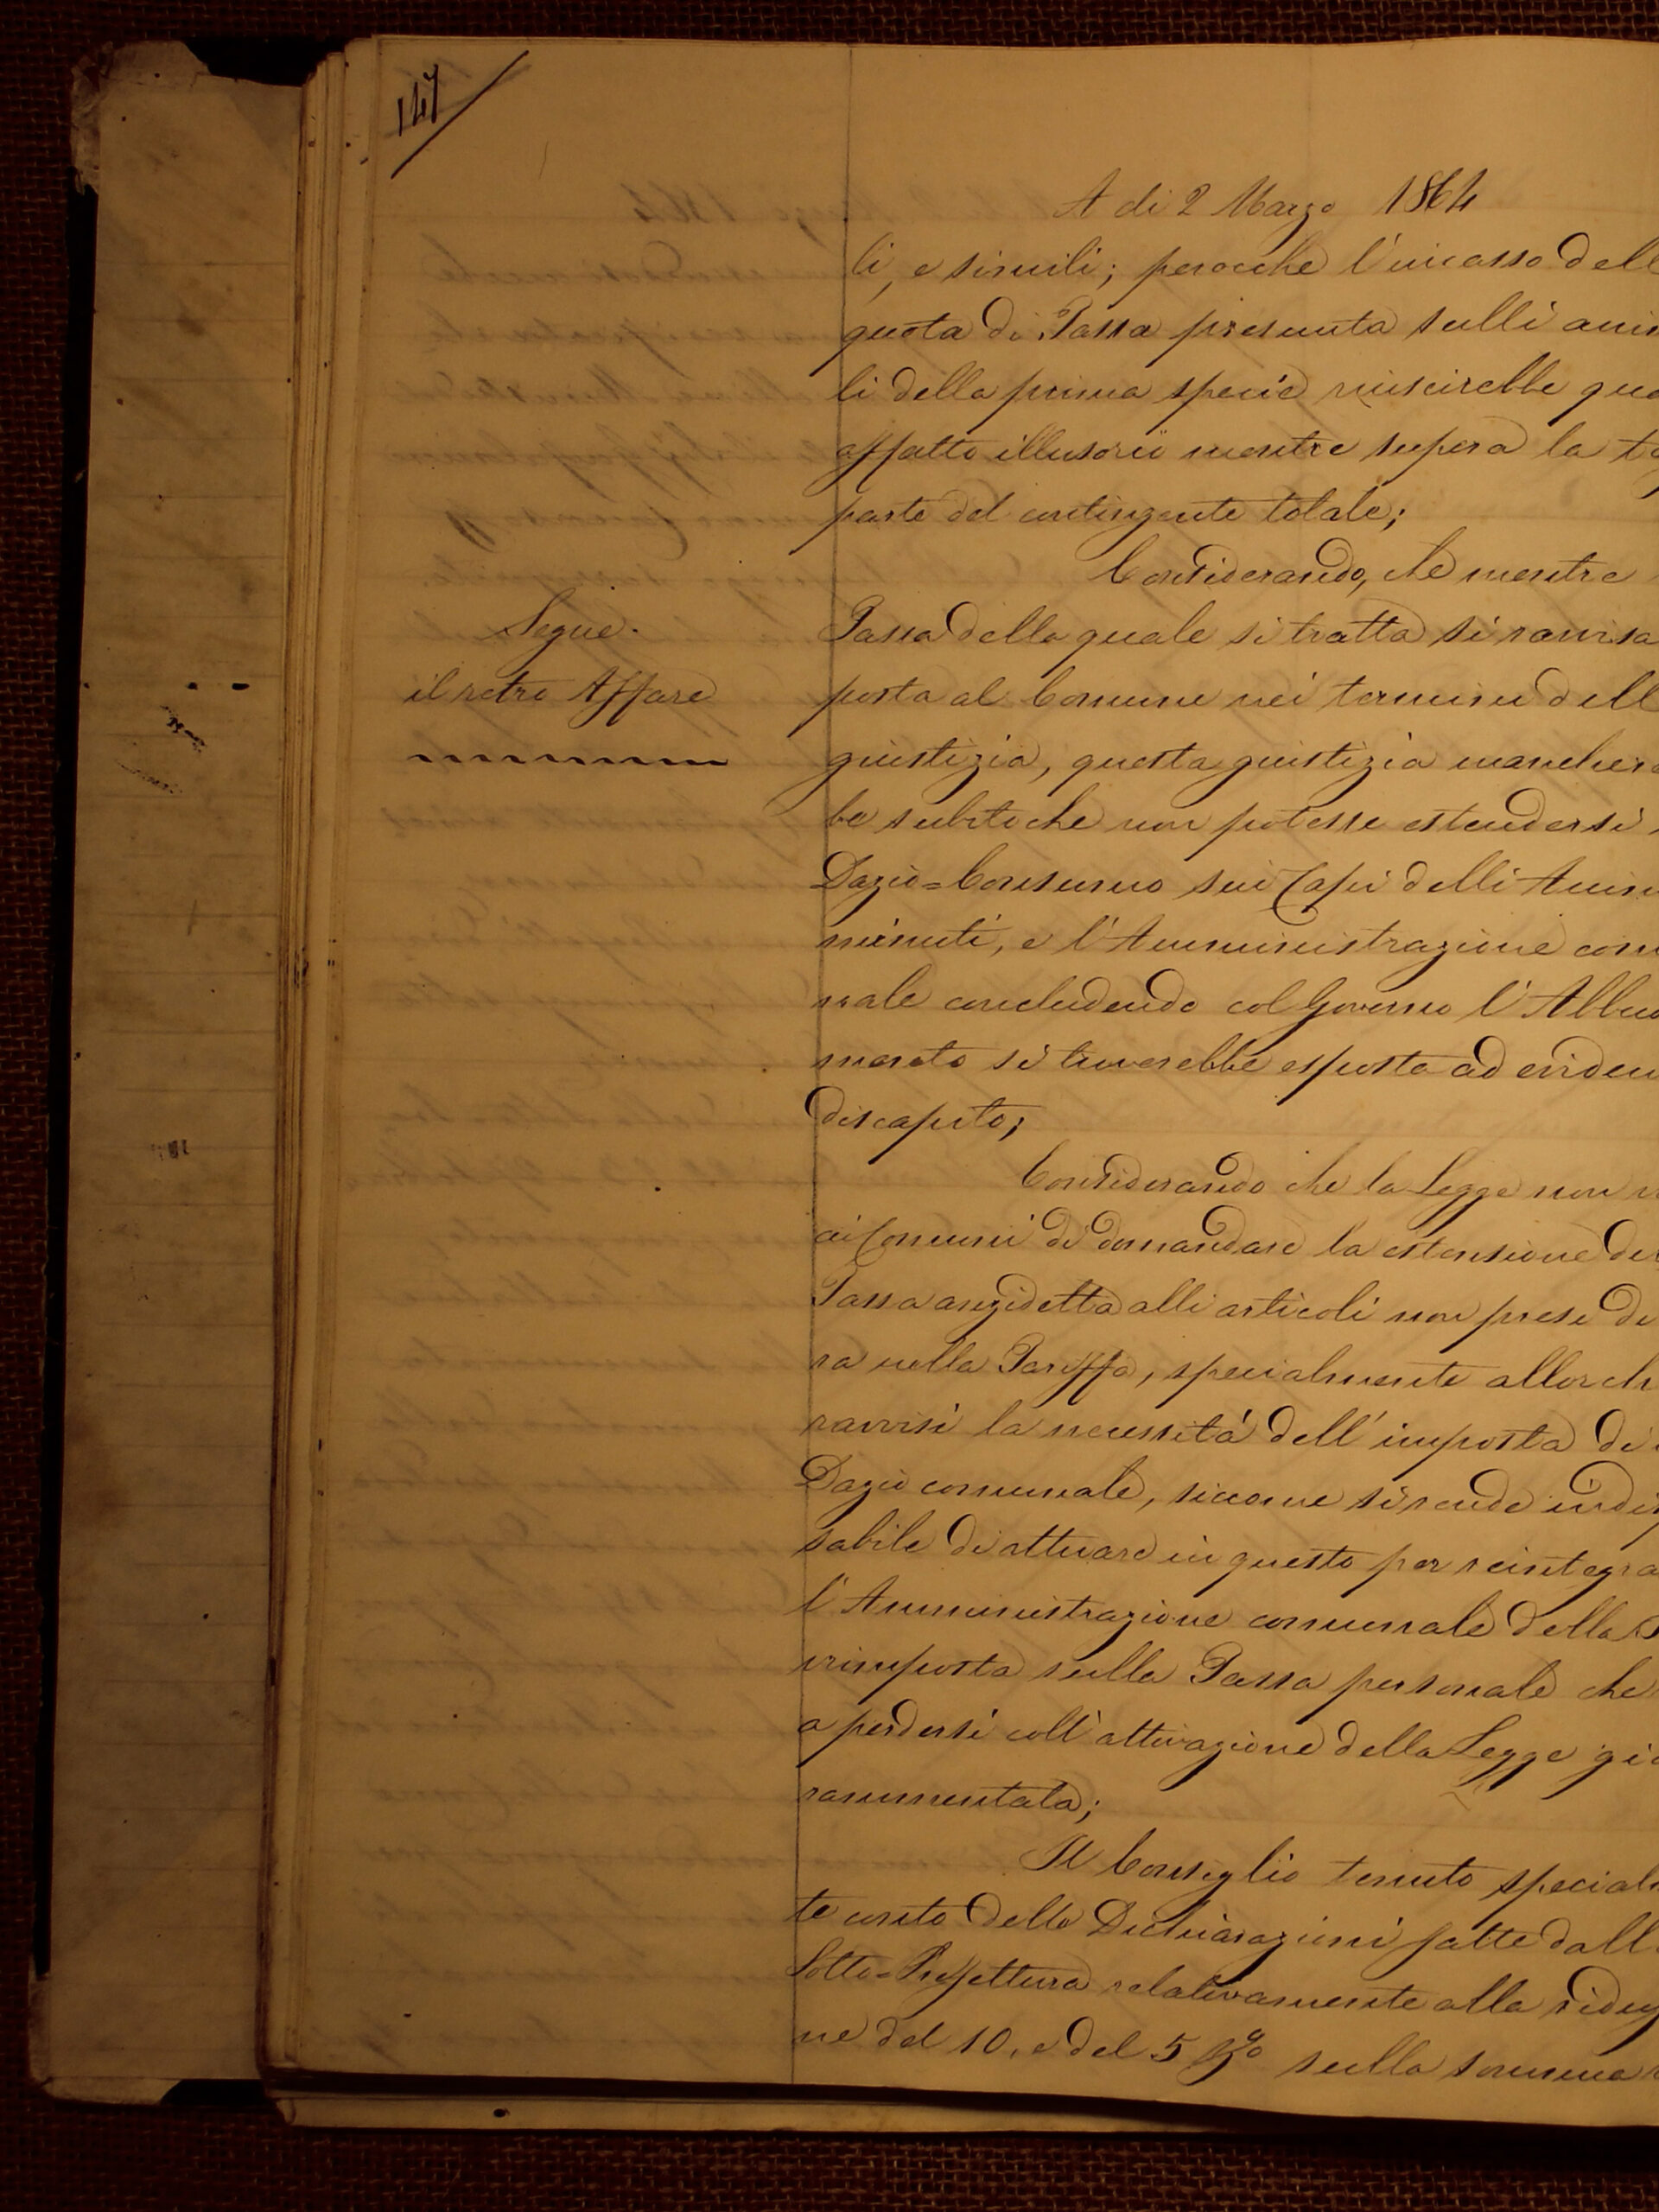 147
A di 2 Marzo 1864
li, e simili; perocche l'incasso dell
quota di Tassa presunta sulli anim
li della prima specie riuscirebbe qua
affatto illusorii mentre supera la te
parte del contingente totale;
Considerando, che mentre
Segue.
il retro Affare
Tassa della quale si tratta si ravvisa
posta al Comune nei termini dell
giustizia, questa giustizia manchere
be subito che non potesse estendersi
Dazio=Consumo sui Capi delli Anim
minuti, e l'Amministrazione com
nale concludendo col Governo l'Abbuo
mento si troverebbe esposta ad eviden
discapito;
Considerando che la Legge non
ai Comuni di domandare la estensione de
Tassa anzidetta alli articoli non presi di
ra nella Tariffa, specialmente allorch
ravvisi la necessità dell'imposta di
Dazio comunale, siccome si rende indis
sabile di attuare in questo per reintegra
l'Amministrazione comunale della S
vrimposta sulla Tassa personale che
a perdersi coll'attivazione della Legge gia
rammentata;
Il Consiglio tenuto special
te conto delle Dichiarazioni fatte dall
Sotto=Prefettura relativamente alla riduz
ne del 10, e del 5 p% sulla somma